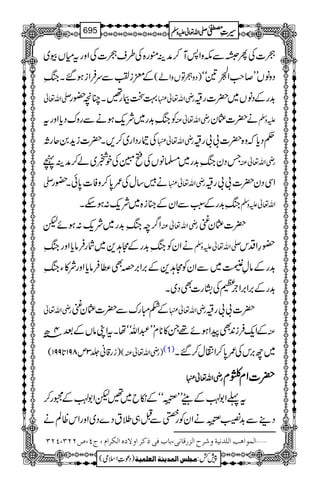 سیرتِ مصطفی صلی اللہ تعالیٰ علیہ وسلم 695
کی ہجرت پھر حبشہ سے مکہ واپس آ کر مدینہ منورہ کی طرف ہجرت کی اور یہ میاں بیوی
دونوں ”صاحب الہجرتین“ (دو ہجرتوں والے) کے معزز لقب سے سرفراز ہو گئے۔ جنگ
بدر کے دنوں میں حضرت رقیہ رضی اللہ تعالیٰ عنہا بہت سخت بیمار تھیں۔ چنانچہ حضور صلی اللہ تعالیٰ
علیہ وسلم نے حضرت عثمان رضی اللہ تعالیٰ عنہ کو جنگ بدر میں شریک ہونے سے روک دیا اور یہ
حکم دیا کہ وہ حضرت بی بی رقیہ رضی اللہ تعالیٰ عنہا کی تیمارداری کریں۔ حضرت زید بن حارثہ
رضی اللہ تعالیٰ عنہ جس دن جنگ بدر میں مسلمانوں کی فتح مبین کی خوشخبری لے کر مدینہ پہنچے
اسی دن حضرت بی بی رقیہ رضی اللہ تعالیٰ عنہا نے بیس سال کی عمر پا کر وفات پائی۔ حضور صلی
اللہ تعالیٰ علیہ وسلم جنگ بدر کے سبب سے ان کے جنازہ میں شریک نہ ہو سکے۔
حضرت عثمان غنی رضی اللہ تعالیٰ عنہ اگرچہ جنگ بدر میں شریک نہ ہوئے لیکن
حضور اقدس صلی اللہ تعالیٰ علیہ وسلم نے ان کو جنگ بدر کے مجاہدین میں شمار فرمایا اور جنگ
بدر کے مال غنیمت میں سے ان کو مجاہدین کے برابر حصہ بھی عطا فرمایا اور شرکاء جنگ
بدر کے برابر اجر عظیم کی بشارت بھی دی۔
حضرت بی بی رقیہ رضی اللہ تعالیٰ عنہا کے شکم مبارک سے حضرت عثمان غنی رضی اللہ تعالیٰ
عنہ کے ایک فرزند بھی پیدا ہوئے تھے جن کا نام ”عبداللہ“ تھا۔ یہ اپنی ماں کے بعد ۴ھ
میں چھ برس کی عمر پا کر انتقال کر گئے۔ (1) (رضی اللہ تعالیٰ عنہ) (زرقانی جلد ۳ ص ۱۹۸ تا ۱۹۹)
حضرت ام کلثوم رضی اللہ تعالیٰ عنہا
یہ پہلے ابولہب کے بیٹے ”عتیبہ“ کے نکاح میں تھیں لیکن ابولہب کے مجبور کر
دینے سے بدنصیب عتیبہ نے ان کو رخصتی کے قبل ہی طلاق دے دی اور اس ظالم نے
......المواهب اللدنية وشرح الزرقانی، باب فی ذکر اولاده الکرام ، ج٤، ص٣٢٢، ٣٢٤
پیش کش: مجلس المدينة العلمية (دعوتِ اسلامی)